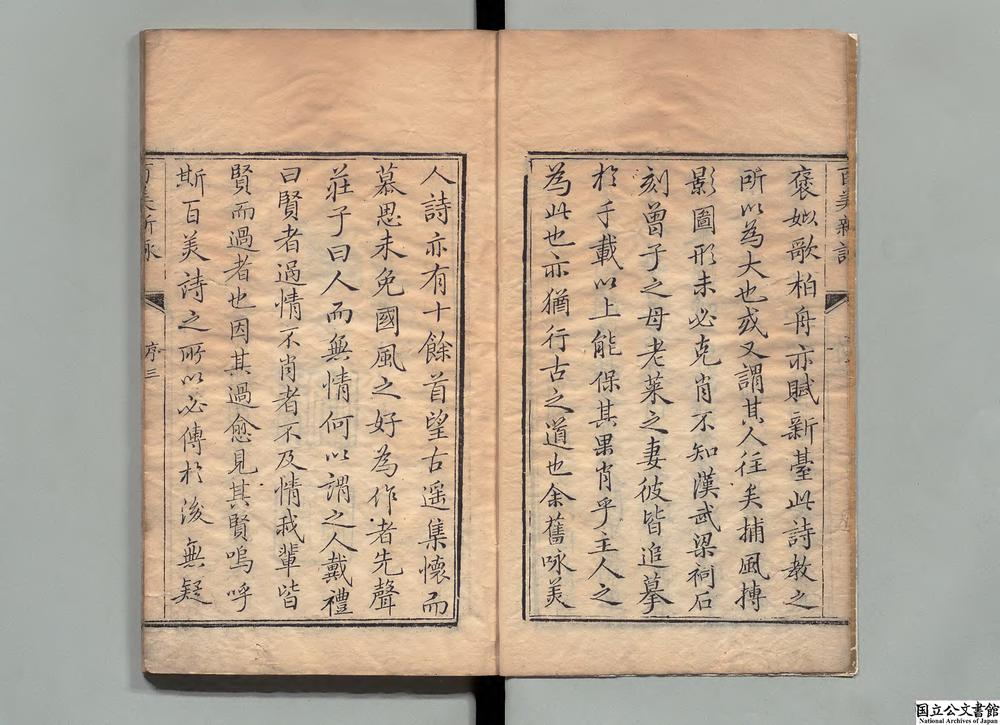 百美新詠
褒姒歌柏舟亦賦新臺此詩教之
所以為大也或又謂其人往矣捕風搏
影圖形未必克肖不知漢武梁祠石
刻曾子之母老萊之妻彼皆追摹
於千載以上能保其果肖乎主人之
為此也亦猶行古之道也余舊咏美
人詩亦有十餘首望古遥集懷而
慕思未免國風之好為作者先聲
莊子曰人而無情何以謂之人戴禮
曰賢者過情不肖者不及情我輩皆
賢而過者也因其過愈見其賢嗚呼
斯百美詩之所以必傳於後無疑
百美新詠 序 三
国立公文書館
National Archives of Japan